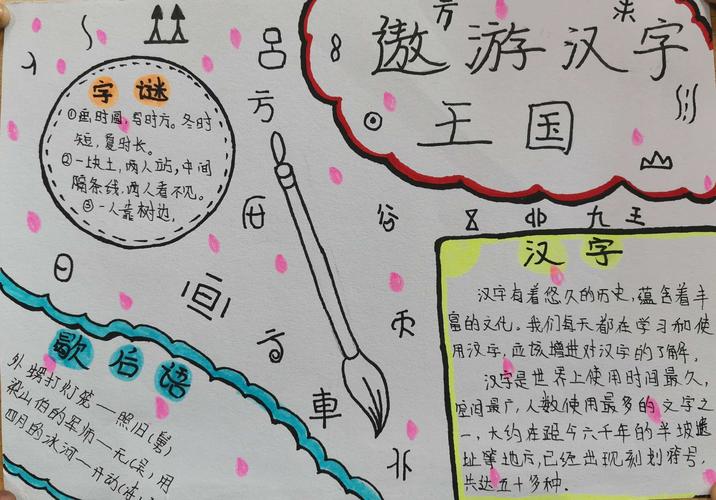 遨游汉字
王国
字谜
①画时圆,写时方。冬时
短,夏时长。
②一块土,两人站,中间
隔条线,两人看不见。
③一人靠树边,
方
吕
8
日
車
九
王
汉字
汉字有着悠久的历史,蕴含着丰
富的文化。我们每天都在学习和使
用汉字,应该增进对汉字的了解,
汉字是世界上使用时间最久,
空间最广,人数使用最多的文字之
一,大约在距今六千年的半坡遗
址等地方,已经出现刻划符号,
共达五十多种.
歇后语
外甥打灯笼—照旧(舅)
梁山伯的—无(吴)用
四月的冰河—开动(冻)